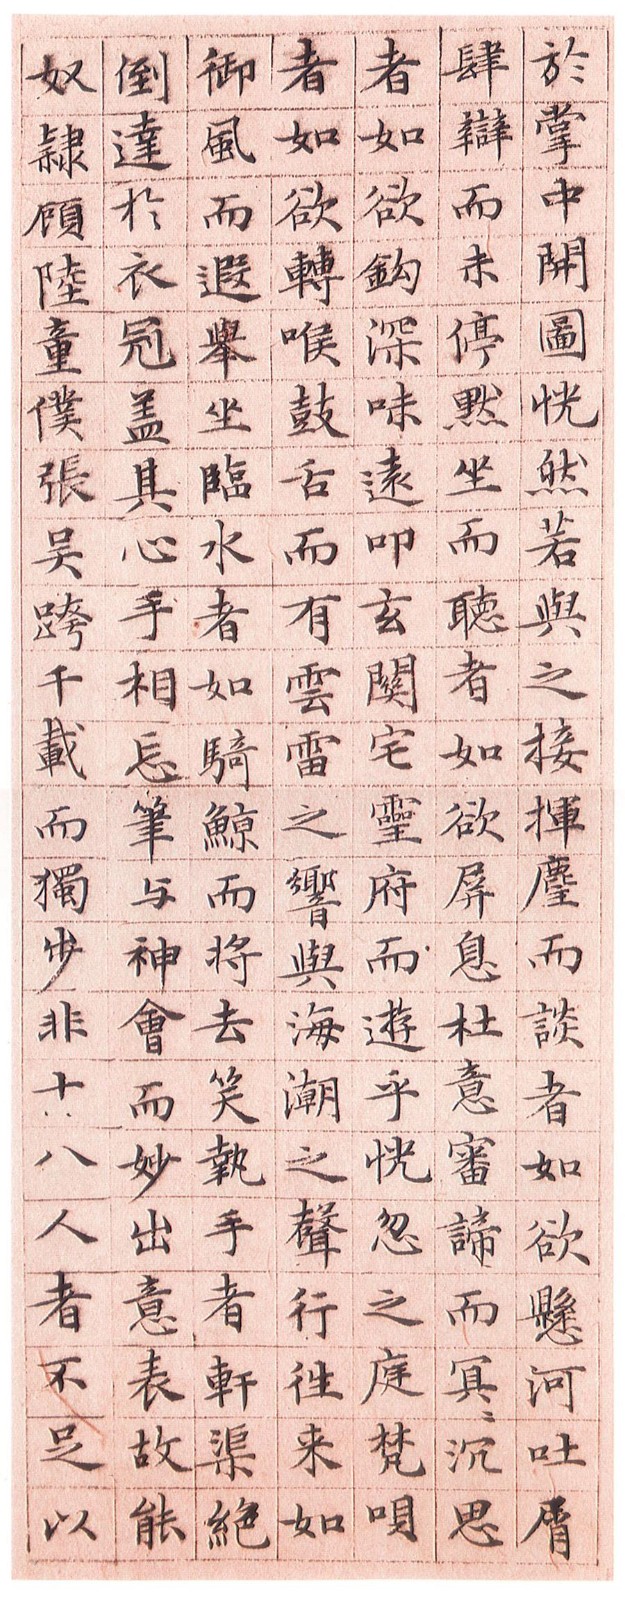 於掌中開圖恍然若與之接揮麈而談者如欲懸河吐屑
肆辯而未停默坐而聽者如欲屏息杜意審諦而冥〻沉思
者如欲鈎深味遠叩玄關宅靈府而遊乎恍忽之庭梵唄
者如欲轉喉鼓舌而有雲雷之響與海潮之聲行徃来如
御風而遐舉坐臨水者如騎鯨而将去笑執手者軒渠絶
倒達於衣冠盖其心手相忘筆与神會而妙出意表故能
奴隸顧陸童僕張吴跨千載而獨步非十八人者不足以